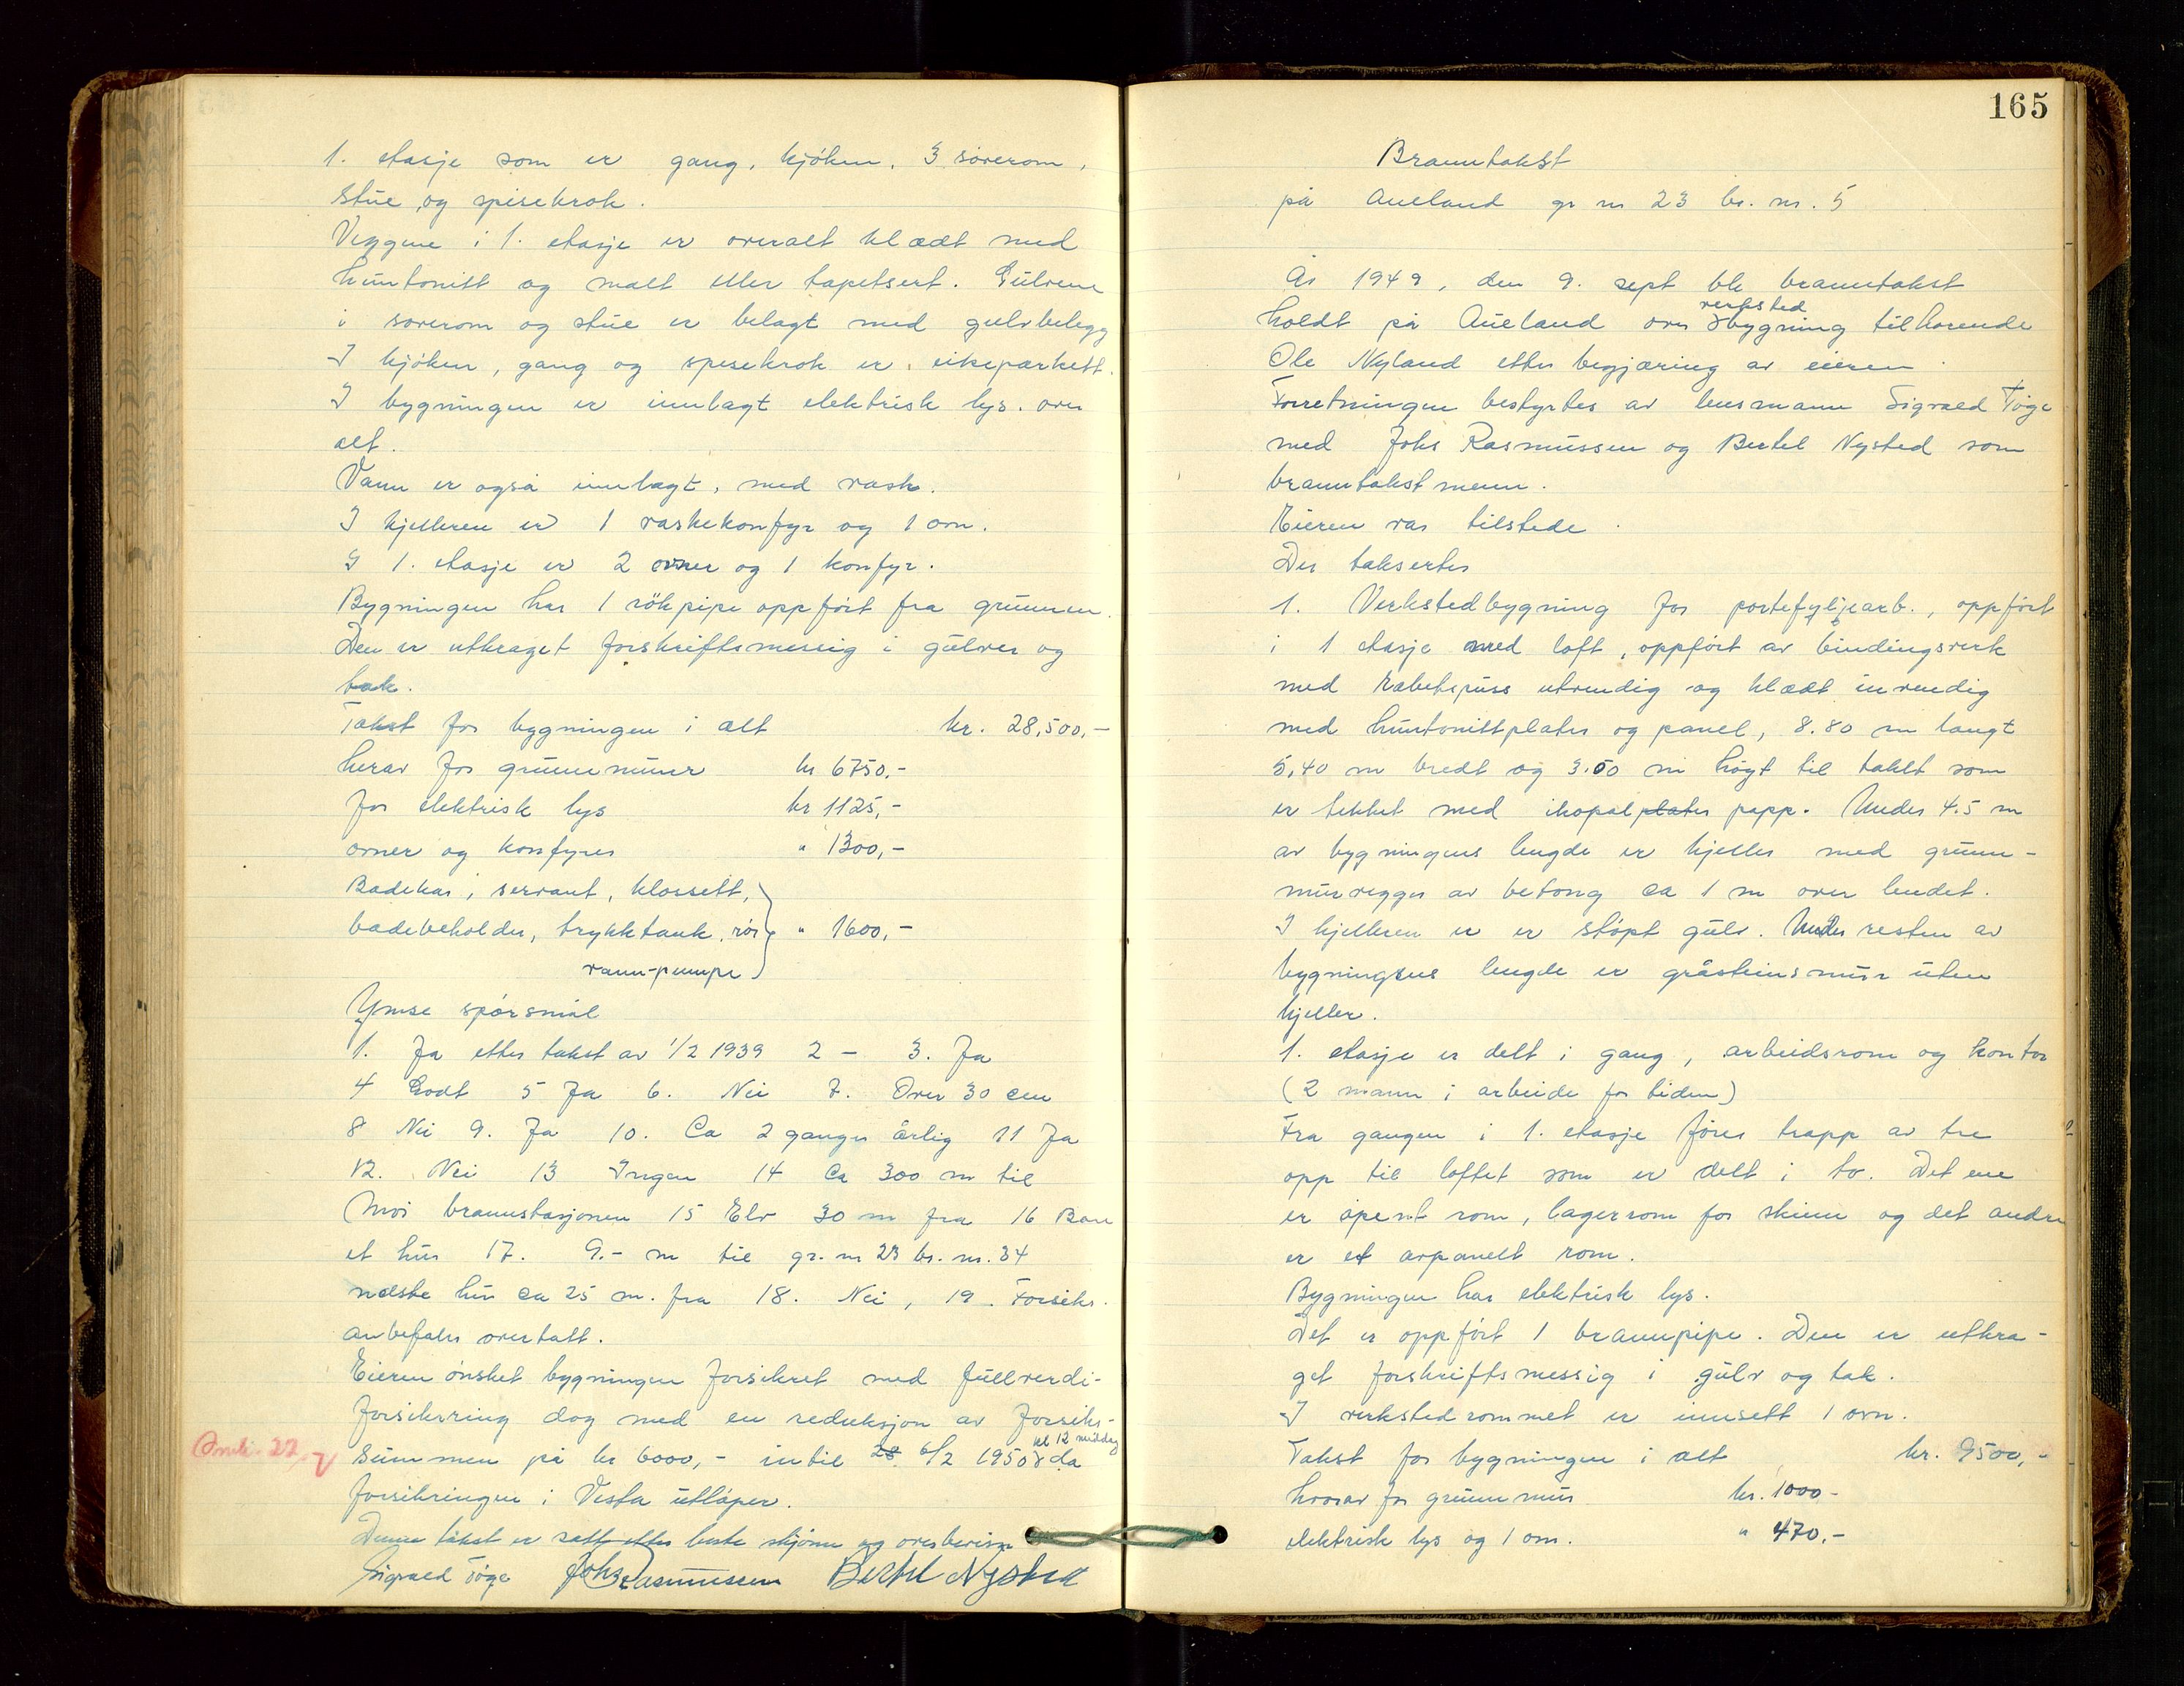 1. etasje som er gang, kjöken, 3 soverom,
stue, og spisekrok.
Veggene i 1. etasje er overalt klædt med
huntonitt og malt eller tapetsert. Gulvene
i soverom og stue er belagt med gulvbelegg
I kjöken, gang og spisekrok er eikeparkett.
I bygningen er innlagt elektrisk lys. over
alt.
Vann er også innlagt, med vask.
I kjelleren er 1 vaskekonfyr og 1 ovn.
I 1. etasje er 2 ovner og 1 konfyr.
Bygningen har 1 rökpipe oppfört fra grunnen.
Den er utkraget forskriftsmessig i gulver og
tak.
Takst for bygningen i alt kr. 28,500,-
herav for grunnmurer kr 6750,-
for elektrisk lys kr 1125,-
ovner og konfyrer " 1300,-
Badekar, servant, klossett,
badebeholder, trykktank, rör " 1600,-
vann-pumpe
Ymse spörsmål
1. Ja etter takst av 1/2 1939 2 - 3. Ja
4 Godt 5 Ja 6. Nei 7. Over 30 cm
8 Nei 9. Ja 10. Ca 2 ganger årlig 11 Ja
12. Nei 13 Ingen 14 Ca 300 m til
Moi brannstasjonen 15 Elv 30 m fra 16 Bare
et hus 17. 9.- m til gr. nr 23 br. nr. 34
næste hus ca 25 m. fra 18. Nei, 19. Forsikr.
anbefales overtatt.
Eieren önsket bygningen forsikret med fullverdi-
forsikring dog med en reduksjon av forsikr-
kl 12 middag
summen på kr 6000,- intil 28 6/2 1950 da
forsikringen i Vesta utlöper.
Denne takst er satt etter beste skjönn og overbevisn
Sigvald Töge Johs Rasmussen Bertel Nysted
165
Branntakst
på Aueland gr nr 23 br. nr. 5
År 1949, den 9. sept ble branntakst
verksted
holdt på Aueland over bygning tilhörende
Ole Nyland etter begjæring av eieren
Forretningen bestyrtes av lensmann Sigvald Töge
med Johs Rasmussen og Bertel Nysted som
branntakstmenn.
Eieren var tilstede.
Der taksertes
1. Verkstedbygning for portefyljearb., oppfört
i 1 etasje med loft, oppfört av bindingsverk
med Rabetspuss utvendig og klædt invendig
med huntonittplater og panel, 8.80 m langt
5,40 m bredt og 3.50 m högt til taket som
er tekket med ikopalplater papp. Under 4.5 m
av bygningens lengde er kjeller med grunn-
murvegger av betong ca 1 m over lendet.
I kjelleren er er stöpt gulv. Under resten av
bygningens lengde er gråsteinsmur uten
kjeller.
1. etasje er delt i gang, arbeidsrom og kontor
(2 mann i arbeide for tiden)
Fra gangen i 1. etasje förer trapp av tre
opp til loftet som er delt i to. Det ene
er åpent rom, lagerrom for skinn og det andre
er et avpanelt rom.
Bygningen har elektrisk lys.
Det er oppfört 1 brannpipe. Den er utkra-
get forskriftsmessig i gulv og tak.
I verkstedrommet er innsett 1 ovn.
Takst for bygningen i alt kr. 9500,-
hvorav for grunnmur kr. 1000-
elektrisk lys og 1 ovn. " 470,-